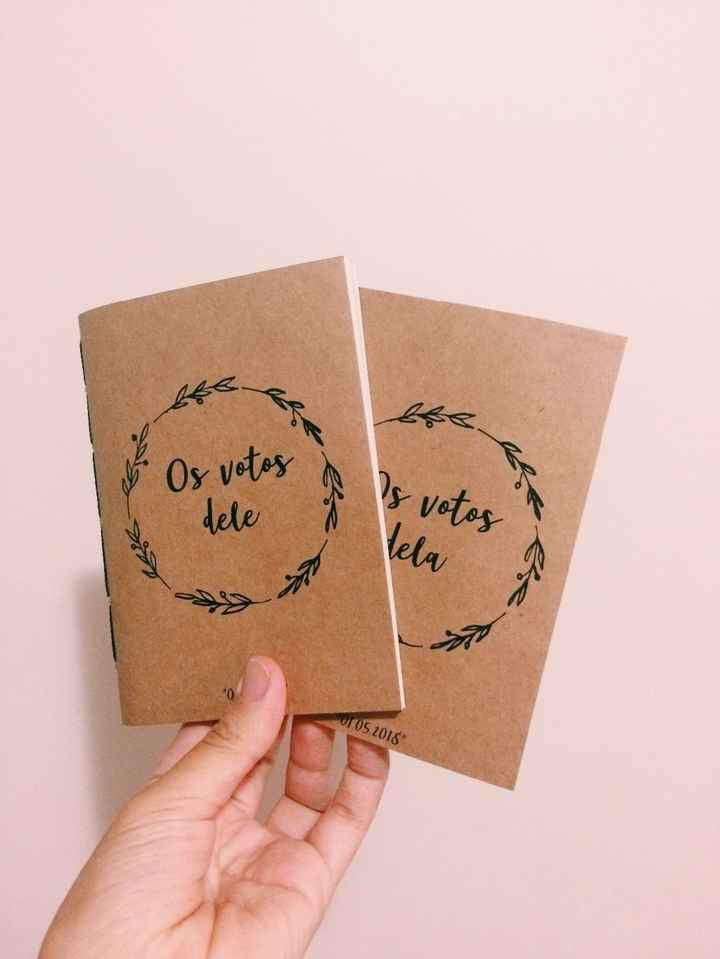 Os votos
dele
Os votos
dela
"01 05 2018"